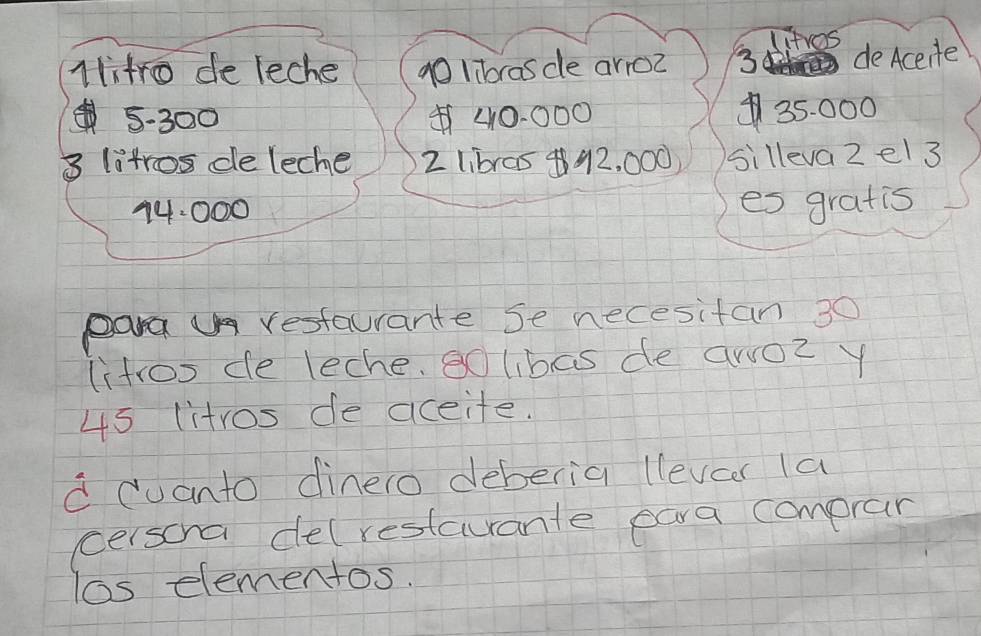 1 litro de leche
$ 5.300
3 litros de leche
14.000
10 libras de arroz
$ 40.000
2 libras $ 12.000
3 litros de Aceite
$ 35.000
si lleva 2 el 3
es gratis
para un restaurante se necesitan 30
litros de leche. 80 libas de arroz y
45 litros de aceite.
¿ Cuanto dinero deberia llevar la
persona del restaurante para comprar
los elementos.